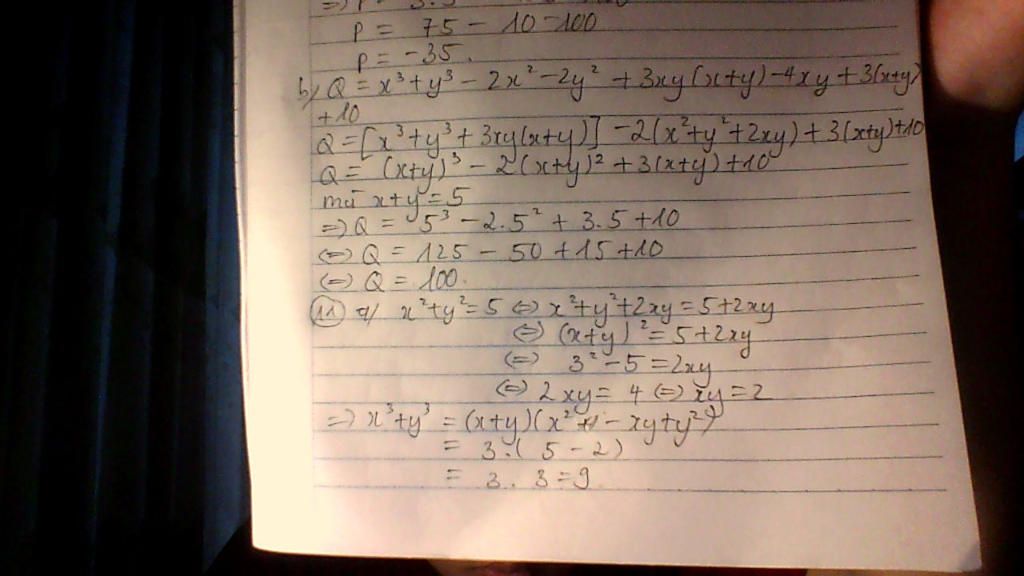 P = 75 - 10 - 100
P = -35.
b) Q = x³ + y³ - 2x² - 2y² + 3xy(x+y) - 4xy + 3(x+y)
+10
Q = [x³ + y³ + 3xy(x+y)] - 2(x² + y² + 2xy) + 3(x+y) + 10
Q = (x+y)³ - 2(x+y)² + 3(x+y) + 10
mà x+y = 5
=> Q = 5³ - 2.5² + 3.5 + 10
<=> Q = 125 - 50 + 15 + 10
<=> Q = 100.
11 a/ x² + y² = 5 <=> x² + y² + 2xy = 5 + 2xy
<=> (x+y)² = 5 + 2xy
<=> 3² - 5 = 2xy
<=> 2xy = 4 <=> xy = 2
=> x³ + y³ = (x+y)(x² - xy + y²)
= 3.(5 - 2)
= 3.3 = 9